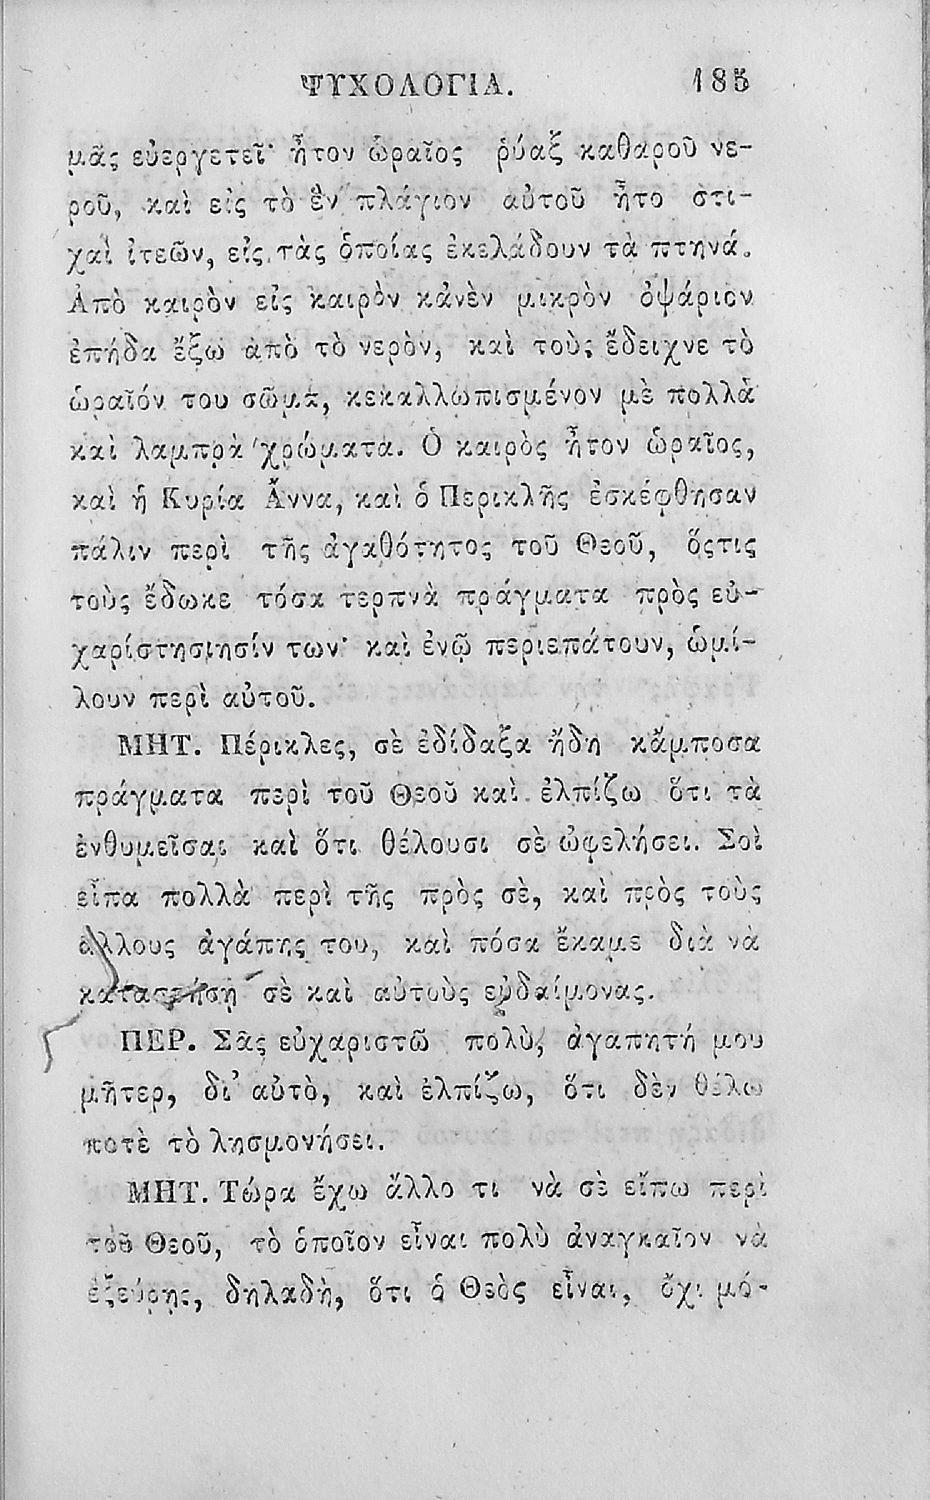 ΨΥΧΟΛΟΓΙΑ. 185
μᾶς εὐεργετεῖ· ἦτον ὡραῖος ῥύαξ καθαροῦ νε-
ροῦ, καὶ εἰς τὸ ἓν πλάγιον αὐτοῦ ἦτο στι-
χαὶ ἰτεῶν, εἰς τὰς ὁποίας ἐκελάδουν τὰ πτηνά.
Ἀπὸ καιρὸν εἰς καιρὸν κἀνὲν μικρὸν ὀψάριον
ἐπήδα ἔξω ἀπὸ τὸ νερὸν, καὶ τοὺς ἔδειχνε τὸ
ὡραῖόν του σῶμα, κεκαλλωπισμένον μὲ πολλὰ
καὶ λαμπρὰ χρώματα. Ὁ καιρὸς ἦτον ὡραῖος,
καὶ ἡ Κυρία Ἄννα, καὶ ὁ Περικλῆς ἐσκέφθησαν
πάλιν περὶ τῆς ἀγαθότητος τοῦ Θεοῦ, ὅςτις
τοὺς ἔδωκε τόσα τερπνὰ πράγματα πρὸς εὐ-
χαρίστησιησίν των· καὶ ἐνῷ περιεπάτουν, ὡμί-
λουν περὶ αὐτοῦ.
ΜΗΤ. Πέρικλες, σὲ ἐδίδαξα ἤδη κἄμποσα
πράγματα περὶ τοῦ Θεοῦ καὶ ἐλπίζω ὅτι τὰ
ἐνθυμεῖσαι καὶ ὅτι θέλουσι σὲ ὠφελήσει. Σοὶ
εἶπα πολλὰ περὶ τῆς πρὸς σὲ, καὶ πρὸς τοὺς
ἄλλους ἀγάπης του, καὶ πόσα ἔκαμε διὰ νὰ
καταστήσῃ σὲ καὶ αὐτοὺς εὐδαίμονας.
ΠΕΡ. Σᾶς εὐχαριστῶ πολὺ, ἀγαπητή μου
μῆτερ, δι’ αὐτὸ, καὶ ἐλπίζω, ὅτι δὲν θέλω
ποτὲ τὸ λησμονήσει.
ΜΗΤ. Τώρα ἔχω ἄλλο τι νὰ σὲ εἴπω περὶ
τοῦ Θεοῦ, τὸ ὁποῖον εἶναι πολὺ ἀναγκαῖον νὰ
ἐξεύρῃς, δηλαδὴ, ὅτι ὁ Θεὸς εἶναι, ὄχι μό-